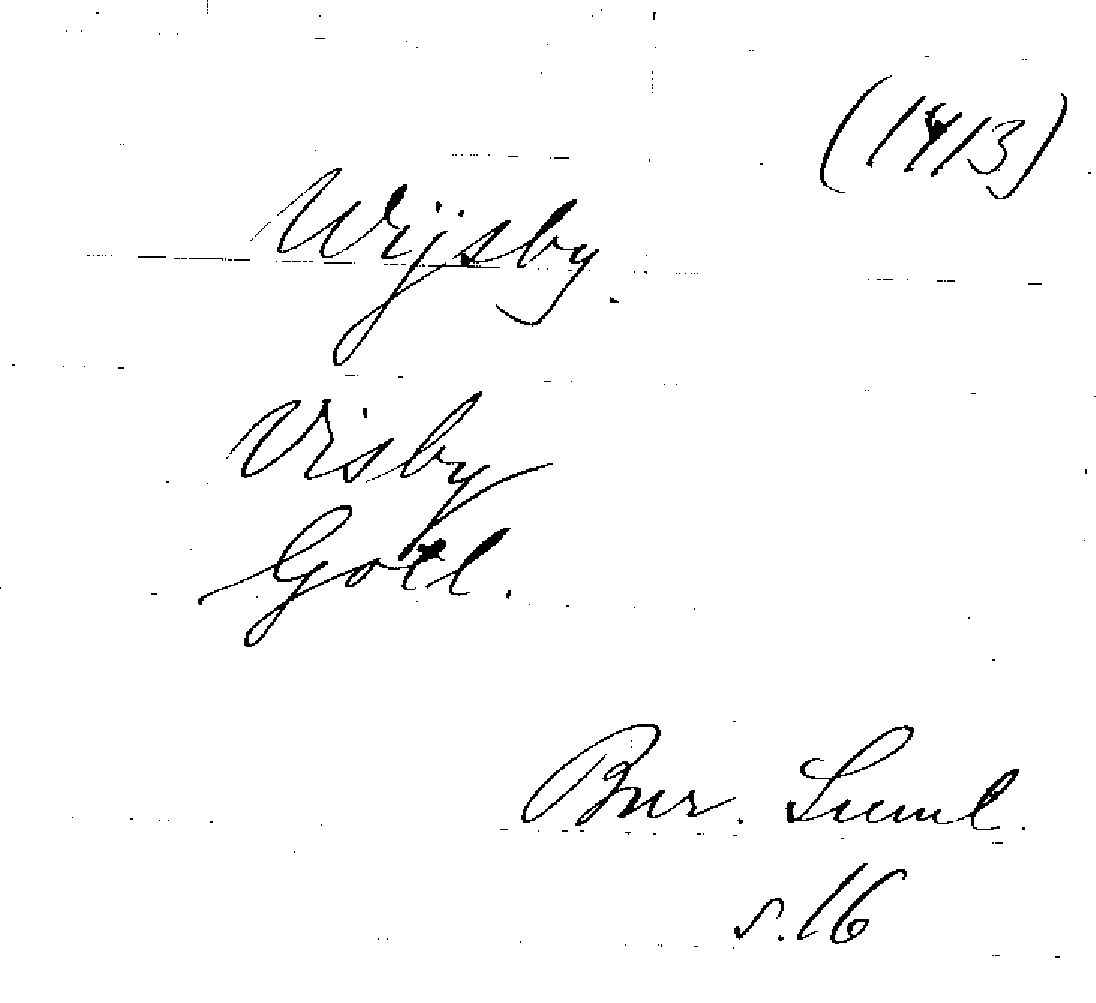 (1413)
Wijsby.
Visby
Gotl.
Bur. Suml.
s. 16